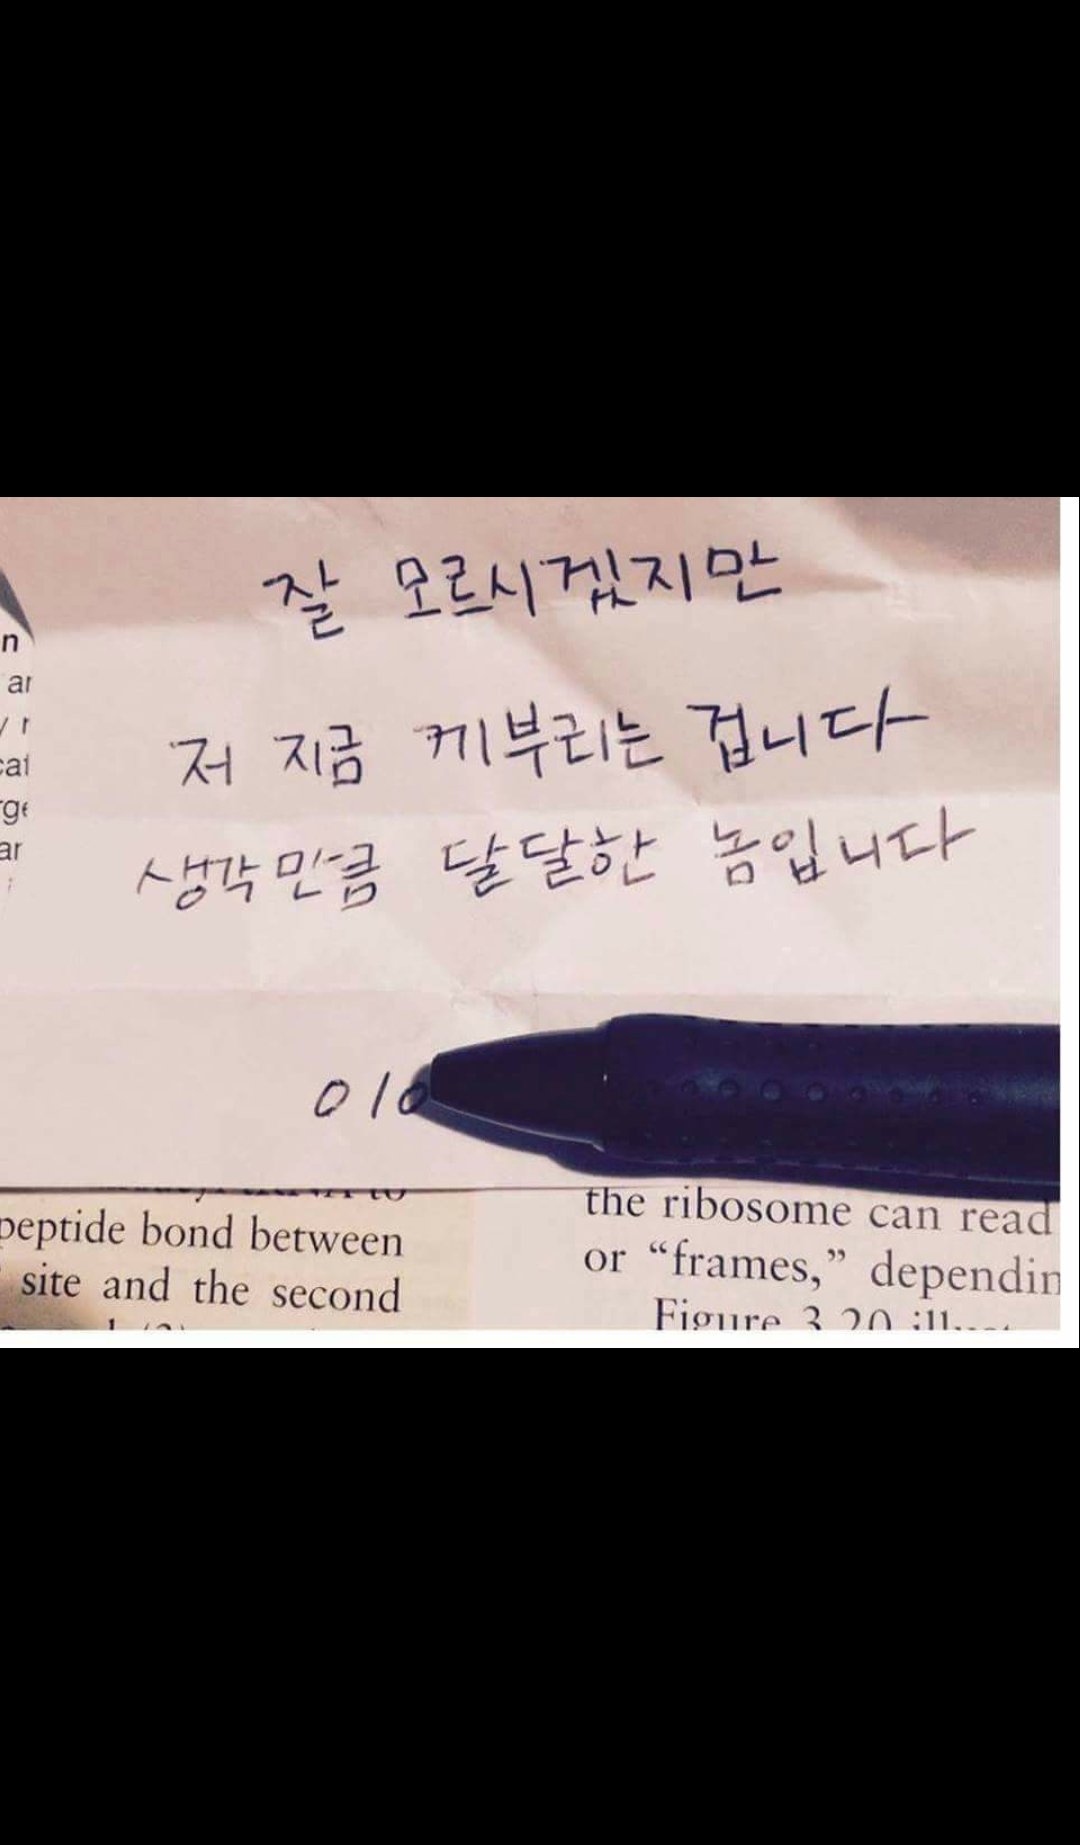 잘 모르시겠지만
저 지금 께부리는 겁니다
생각만큼 달달한 놈입니다
010
n
ar
cat
rge
ar
peptide bond between
site and the second
the ribosome can read
or “frames,” dependin
Figure 3.20